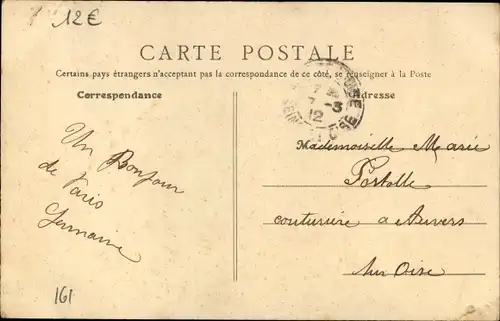 12€
CARTE POSTALE
Certains pays étrangers n'acceptant pas la correspondance de ce côté, se renseigner à la Poste
Correspondance
Adresse
7
7 -3
12
SEINE
OISE
Un Bonjour
de Paris
Germaine
Mademoiselle Marie
couturière a Auvers
Sur Oise
161